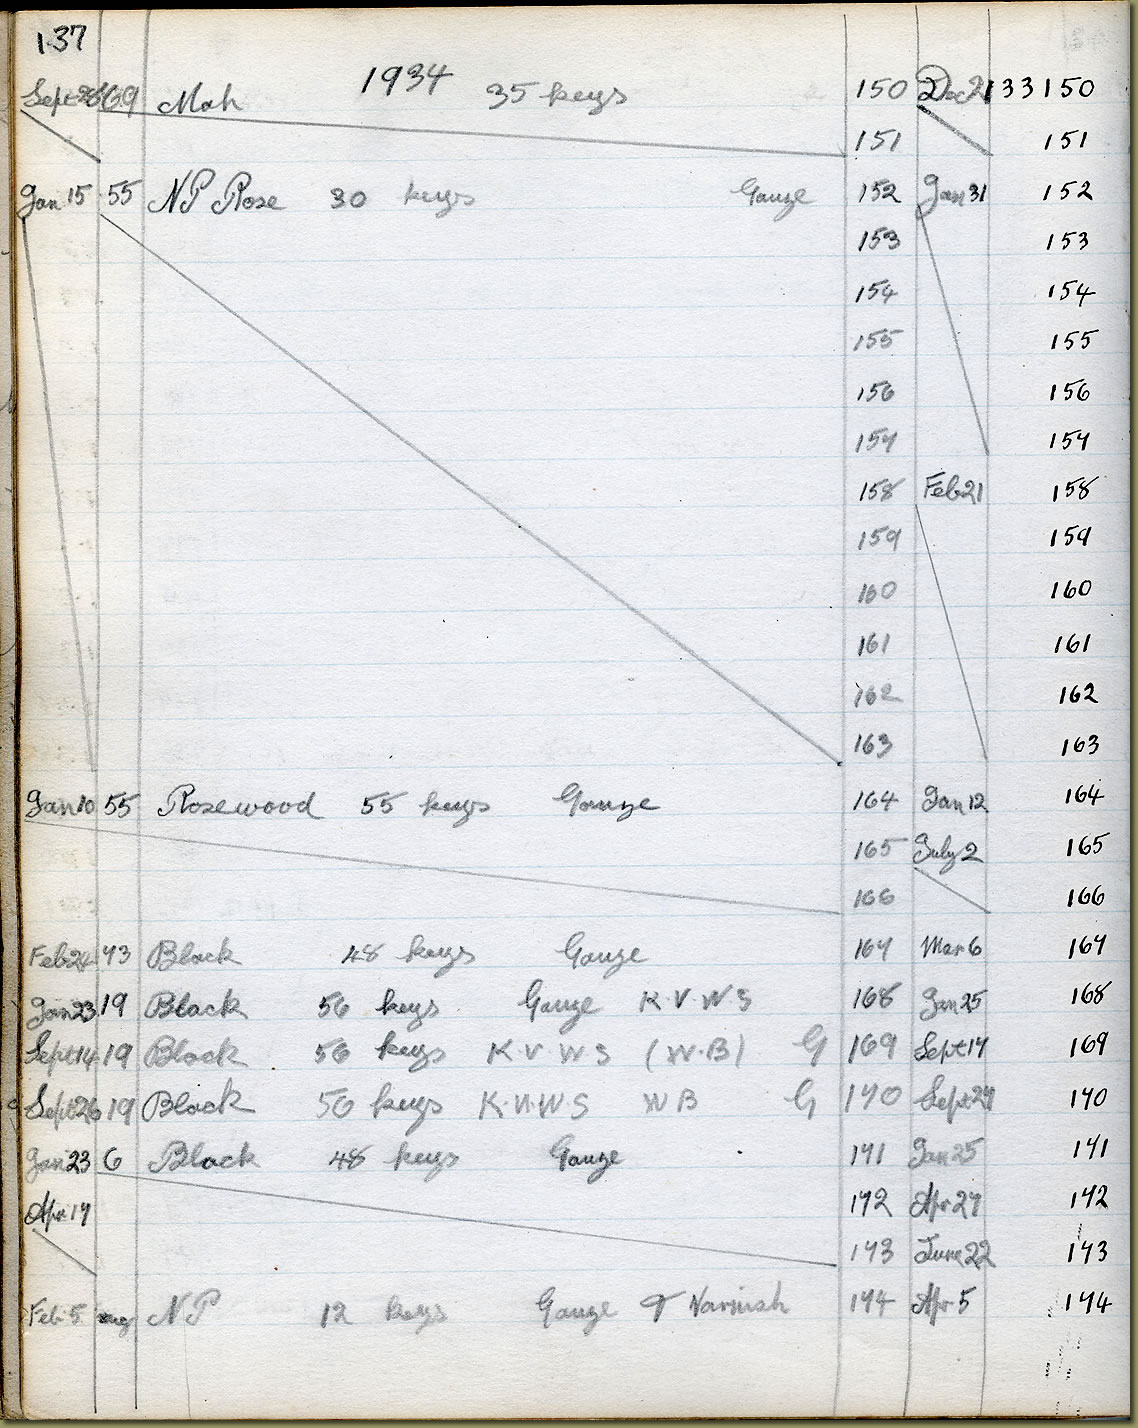 137
1934
Sept 69 Mah 35 keys 150 Dec 21 33150
151 151
Jan 15 55 NP Rose 30 keys Gauze 152 Jan 31 152
153 153
154 154
155 155
156 156
157 157
158 Feb 21 158
159 159
160 160
161 161
162 162
163 163
Jan 10 55 Rosewood 55 keys Gauze 164 Jan 12 164
165 July 2 165
166 166
Feb 24 73 Black 48 keys Gauze 167 Mar 6 167
Jan 23 19 Black 56 keys Gauze K.V.W S 168 Jan 25 168
Sept 14 19 Black 56 keys K.V.W S (W.B) G 169 Sept 17 169
Sept 26 19 Black 56 keys K.V.W S W B G 170 Sept 27 170
Jan 23 6 Black 48 keys Gauze 171 Jan 25 171
Apr 17 172 Apr 27 172
173 June 22 173
Feb 5 NP 12 keys Gauze & Varnish 174 Apr 5 174